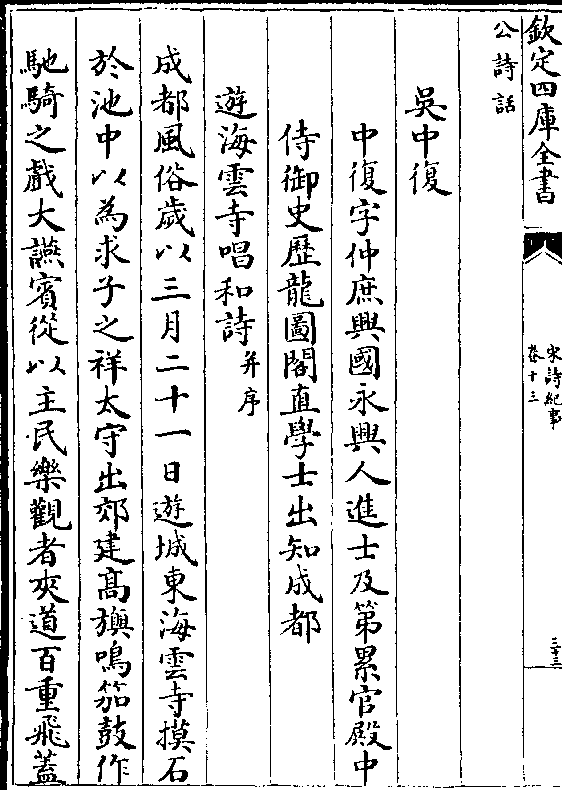 欽定四庫全書
宋詩紀事
卷十三
三十三
公詩話
吳中復
中復字仲庶興國永興人進士及第累官殿中
侍御史歷龍圖閣直學士出知成都
遊海雲寺唱和詩并序
成都風俗歲以三月二十一日遊城東海雲寺摸石
於池中以為求子之祥太守出郊建高旟鳴笳鼓作
馳騎之戲大讌賓從以主民樂觀者夾道百重飛蓋